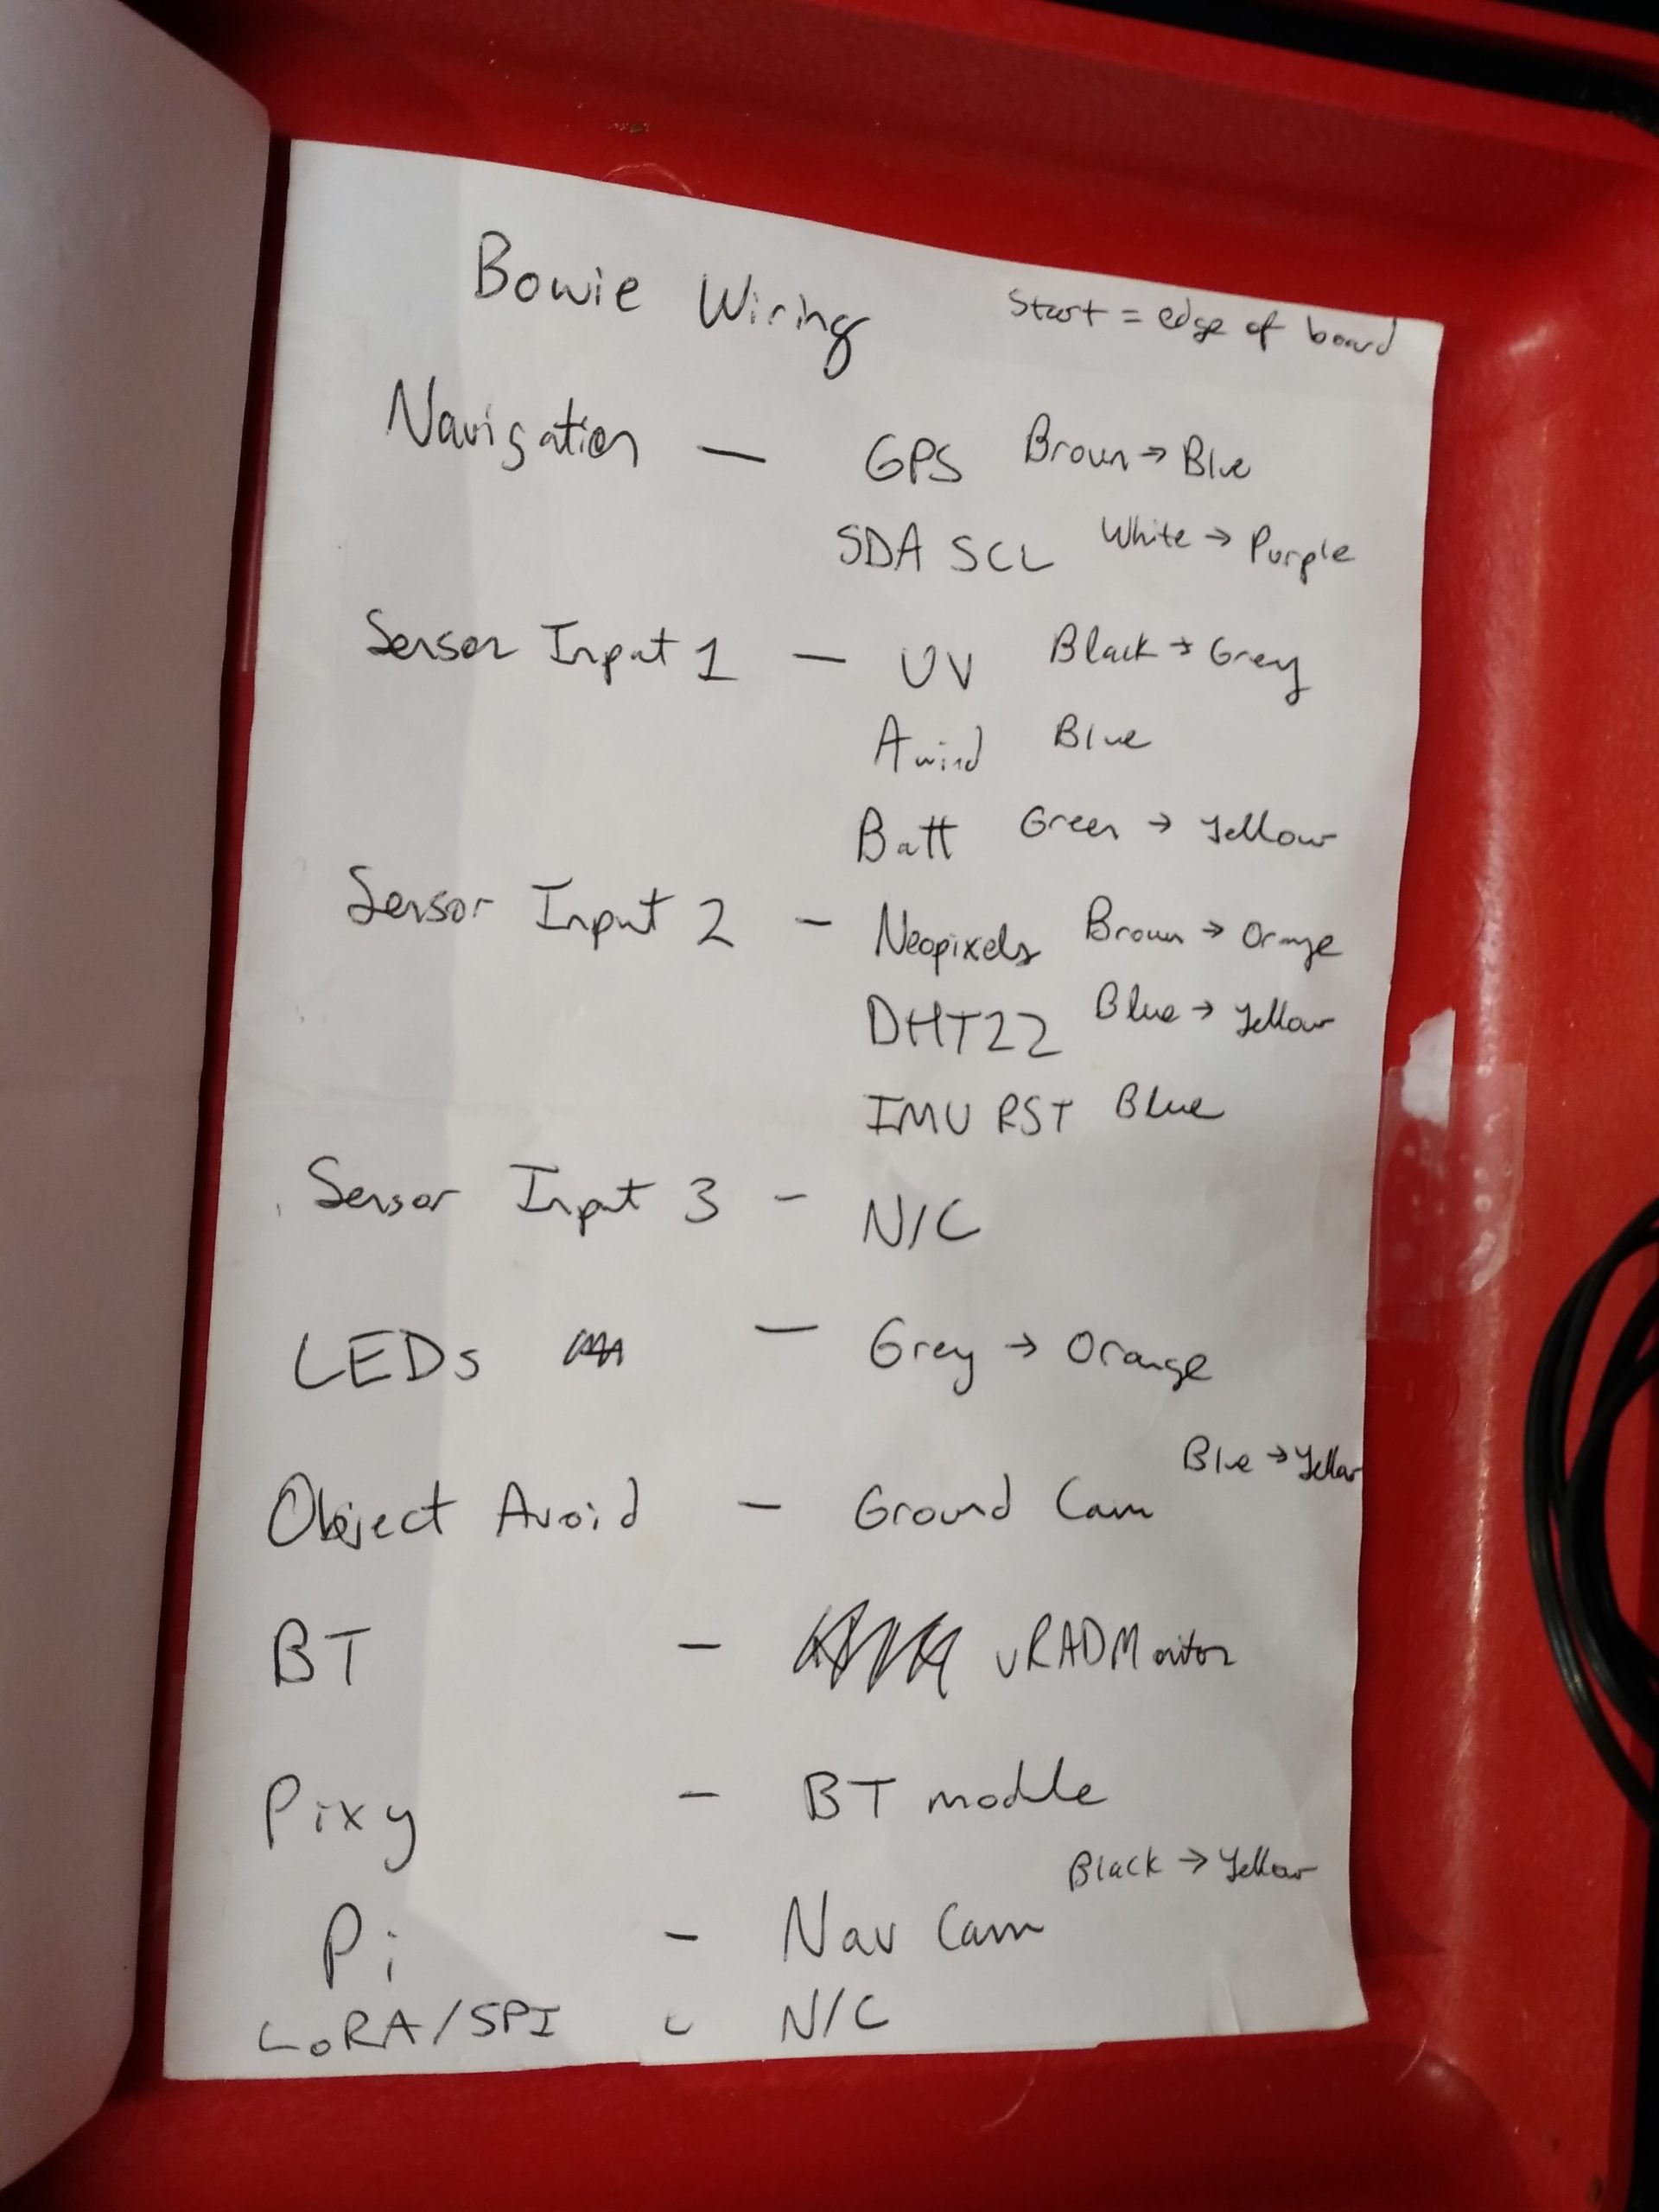 Bowie Wiring Start = edge of board
Navigation — GPS Brown → Blue
SDA SCL White → Purple
Sensor Input 1 — UV Black → Grey
Awind Blue
Batt Green → Yellow
Sensor Input 2 - Neopixels Brown → Orange
DHT22 Blue → Yellow
IMU RST Blue
Sensor Input 3 - N/C
LEDs — Grey → Orange
Object Avoid - Ground Cam Blue → Yellow
BT - uRADMonitor
Pixy - BT module
Pi - Nav Cam Black → Yellow
LoRA/SPI - N/C